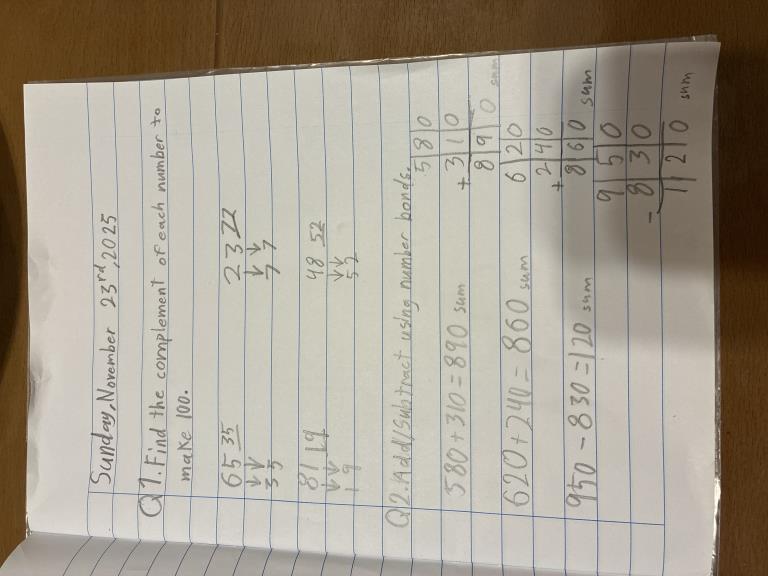 Sunday, November 23rd, 2025
Q1. Find the complement of each number to
make 100.
65 35 23 77
↓↓ ↓ ↓
35 7 7
81 19 48 52
↓↓ ↓↓
1 9 5 2
Q2. Add/Subtract using number bonds.
580+310=890 sum
580
+310
890 sum
620+240=860 sum
620
+240
860 sum
950-830=120 sum
950
-830
120 sum